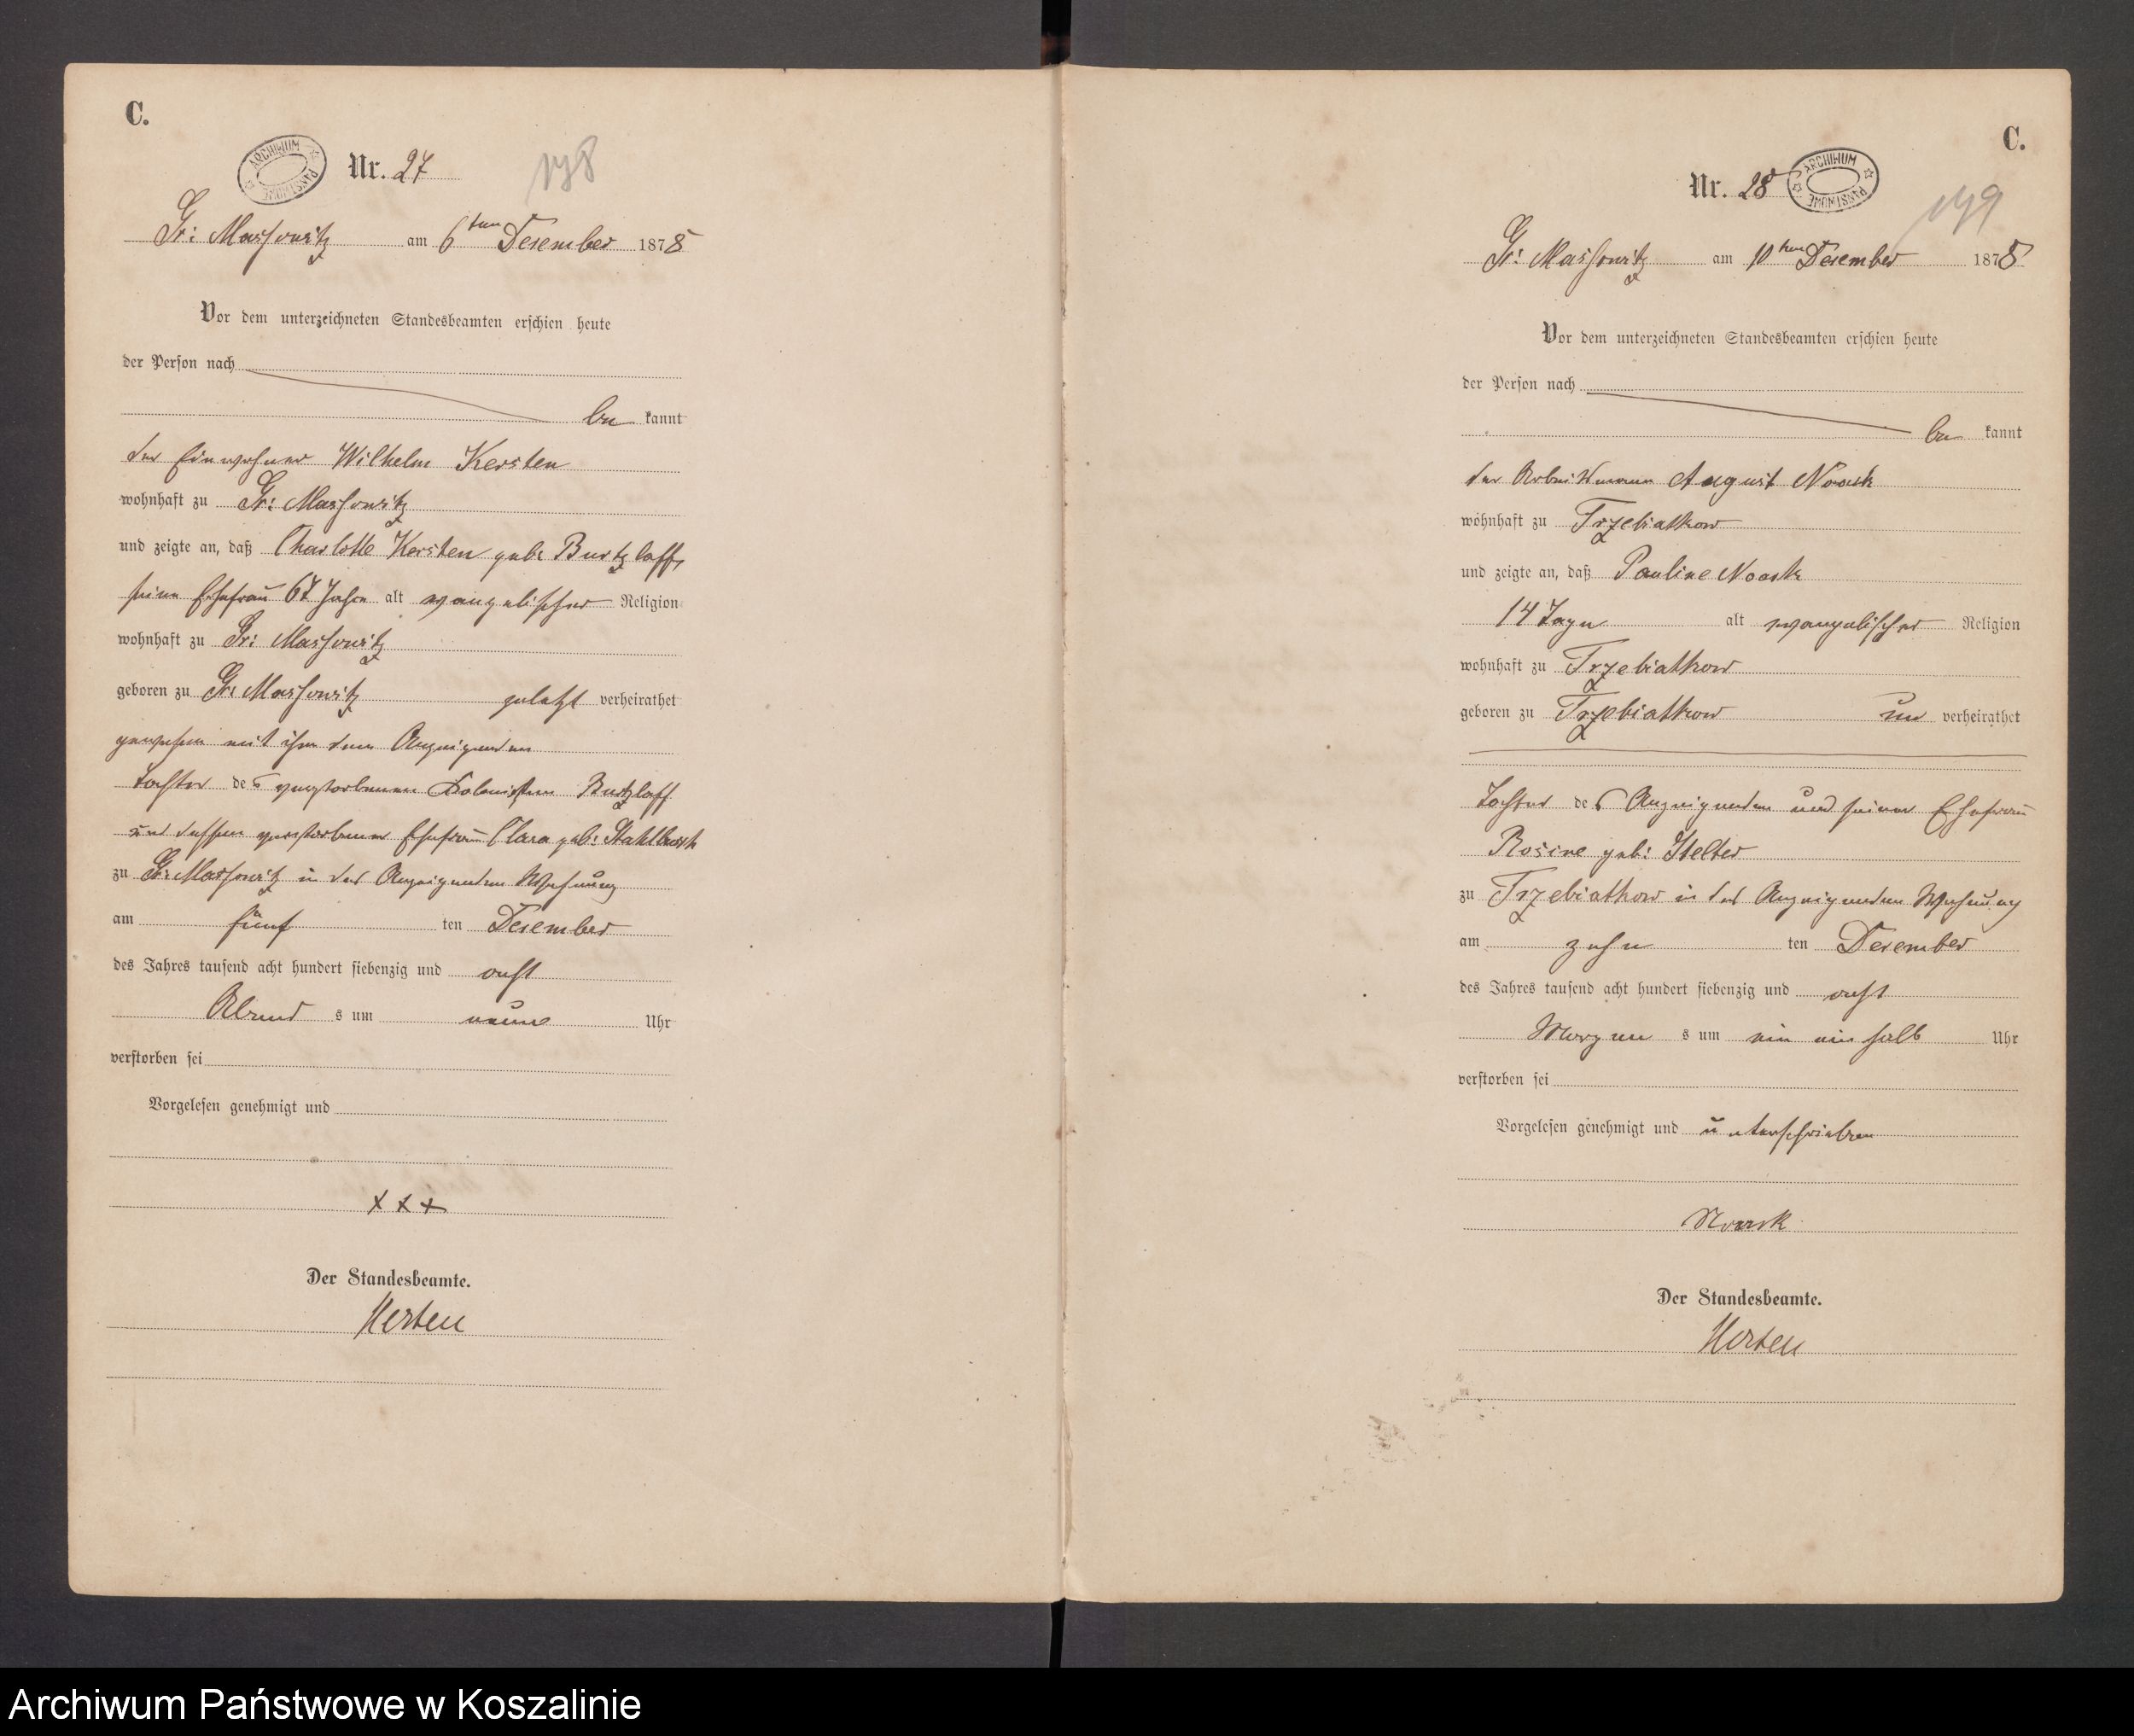 C.
ARCHIWUM PAŃSTWOWE
Nr. 27
178
Gr: Massowitz am 6ten Dezember 1878
Vor dem unterzeichneten Standesbeamten erschien heute
der Person nach
be kannt
der Einwohner Wilhelm Kersten
wohnhaft zu Gr: Massowitz
und zeigte an, daß Charlotte Kersten geb: Burtzlaff,
seine Ehefrau 67 Jahre alt evangelischer Religion
wohnhaft zu Gr: Massowitz
geboren zu Gr: Massowitz zuletzt verheirathet
gewesen mit ihm dem Anzeigenden
Tochter des verstorbenen Kolonisten Burtzlaff
und dessen verstorbener Ehefrau Clara geb:
zu Gr: Massowitz in des Anzeigenden Wohnung
am fünf ten Dezember
des Jahres tausend acht hundert siebenzig und acht
Abend s um neun Uhr
verstorben sei
Vorgelesen genehmigt und
x x x
Der Standesbeamte.
Kerten
C.
Nr. 28
ARCHIWUM PAŃSTWOWE
179
Gr: Massowitz am 10ten Dezember 1878
Vor dem unterzeichneten Standesbeamten erschien heute
der Person nach
be kannt
der Arbeitsmann August Noack
wohnhaft zu Trzebiatkow
und zeigte an, daß Pauline Noack
14 Tage alt evangelischer Religion
wohnhaft zu Trzebiatkow
geboren zu Trzebiatkow un verheirathet
Tochter des Anzeigenden und seiner Ehefrau
Rosine geb: Stelter
zu Trzebiatkow in des Anzeigenden Wohnung
am zehn ten Dezember
des Jahres tausend acht hundert siebenzig und acht
Morgen s um ein ein halb Uhr
verstorben sei
Vorgelesen genehmigt und unterschrieben
Noack
Der Standesbeamte.
Kerten
Archiwum Państwowe w Koszalinie